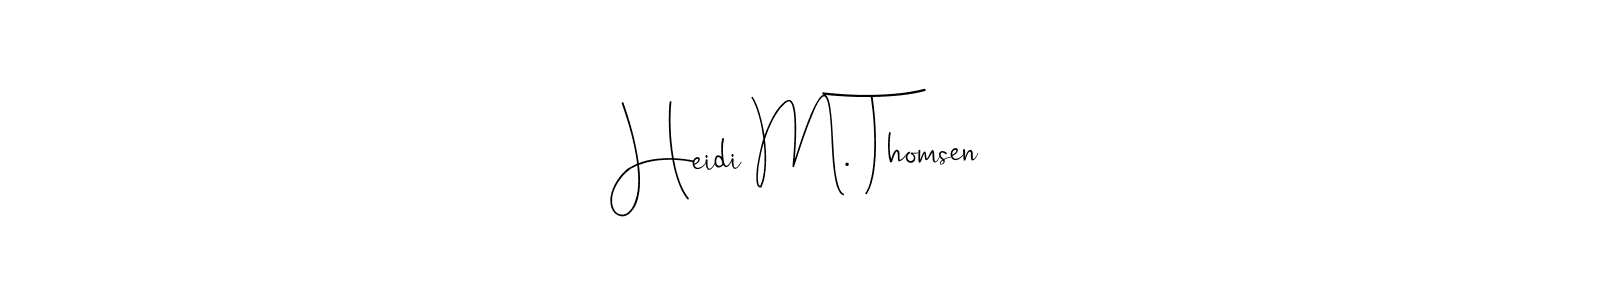 Heidi M. Thomsen